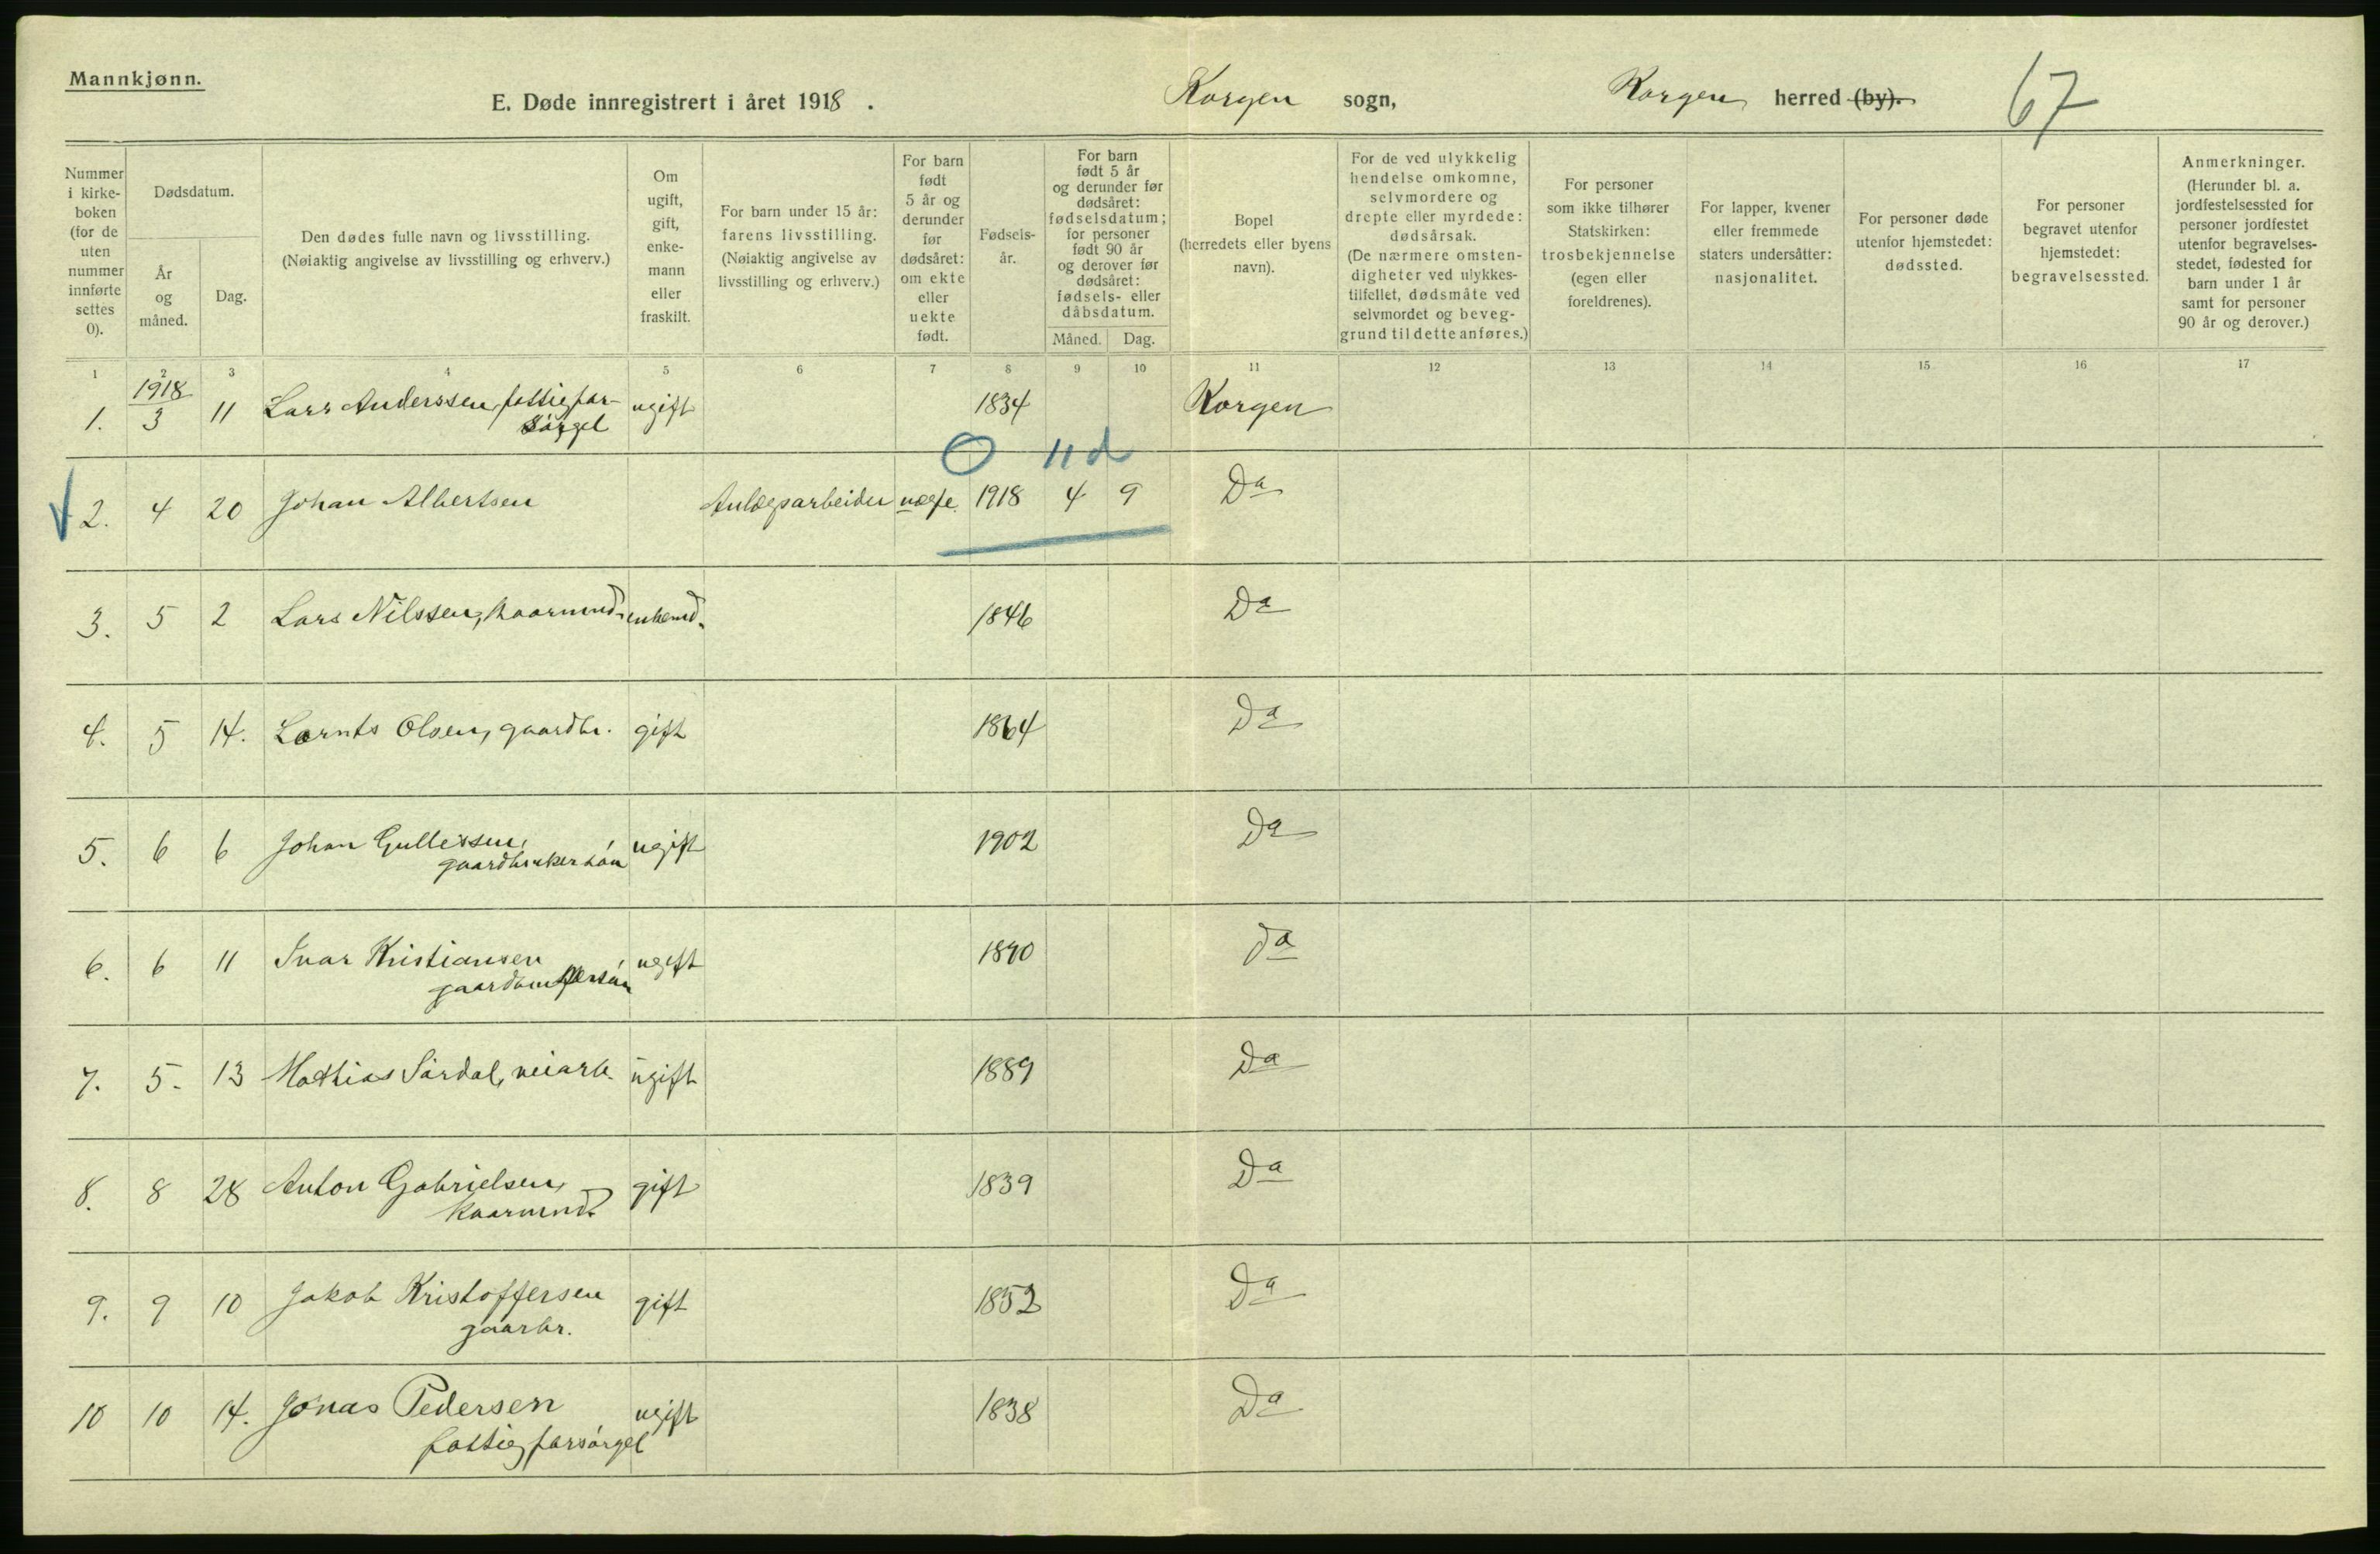 Mannkjønn.
E. Døde innregistrert i året 1918 . Korgen sogn, Korgen herred (by). 67
Nummer i kirke- boken (for de uten nummer innførte settes 0).
Dødsdatum.
År og måned.
Dag.
Den dødes fulle navn og livsstilling.
(Nøiaktig angivelse av livsstilling og erhverv.)
Om ugift, gift, enke- mann eller fraskilt.
For barn under 15 år: farens livsstilling. (Nøiaktig angivelse av livsstilling og erhverv.)
For barn født 5 år og derunder før dødsåret: om ekte eller uekte født.
Fødsels- år.
For barn født 5 år og derunder før dødsåret: fødselsdatum; for personer født 90 år og derover før dødsåret: fødsels- eller dåbsdatum.
Måned. Dag.
Bopel (herredets eller byens navn).
For de ved ulykkelig hendelse omkomne, selvmordere og drepte eller myrdede: dødsårsak. (De nærmere omsten- digheter ved ulykkes- tilfellet, dødsmåte ved selvmordet og beveg- grund til dette anføres.)
For personer som ikke tilhører Statskirken: trosbekjennelse (egen eller foreldrenes).
For lapper, kvener eller fremmede staters undersåtter: nasjonalitet.
For personer døde utenfor hjemstedet: dødssted.
For personer begravet utenfor hjemstedet: begravelsessted.
Anmerkninger. (Herunder bl. a. jordfestelsessted for personer jordfestet utenfor begravelses- stedet, fødested for barn under 1 år samt for personer 90 år og derover.)
1 2 3 4 5 6 7 8 9 10 11 12 13 14 15 16 17
1918
1. 3 11 Lars Anderssen, fattigfor- ugift 1834 Korgen
sørgel
0 11 d
2. 4 20 Johan Albertsen Anlægsarbeider uægte. 1918 4 9 Da
3. 5 2 Lars Nilssen, kaarmnd. enkemd. 1846 Da
4. 5 14. Lornts Olsen, gaardbr. gift 1864 Da
5. 6 6 Johan Gullessen, ugift 1902 Da
gaardbrukersøn
6. 6 11 Ivar Kristiansen ugift 1890 Da
gaardbrukersøn
7. 5. 13 Mathias Sørdal, veiarb. ugift 1889 Da
8. 8 28 Anton Gabrielsen, gift 1839 Da
kaarmnd.
9. 9 10 Jakob Kristoffersen gift 1852 Da
gaarbr.
10 10 14. Jonas Pedersen ugift 1838 Da
fattigforsørgel